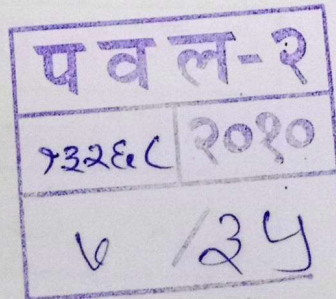 प व ल-२
१३२६८ २०१०
७ /३५